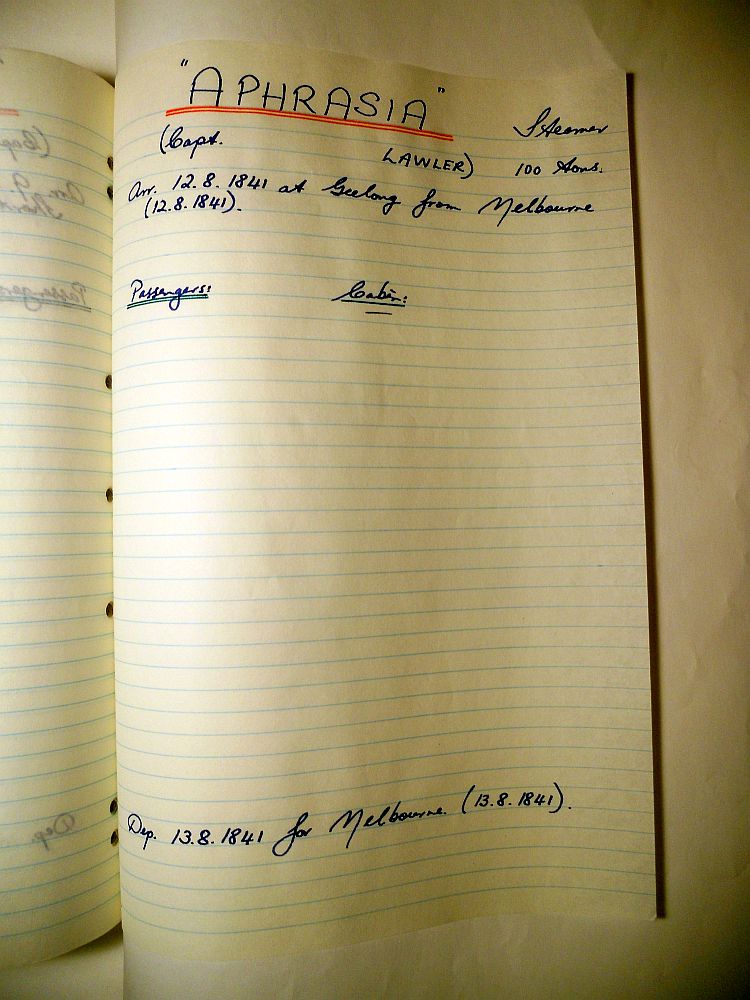 "APHRASIA"
Steamer
(Capt. LAWLER) 100 tons.
Arr. 12.8.1841 at Geelong from Melbourne
(12.8.1841).
Passengers: Cabin:
Dep. 13.8.1841 for Melbourne (13.8.1841).